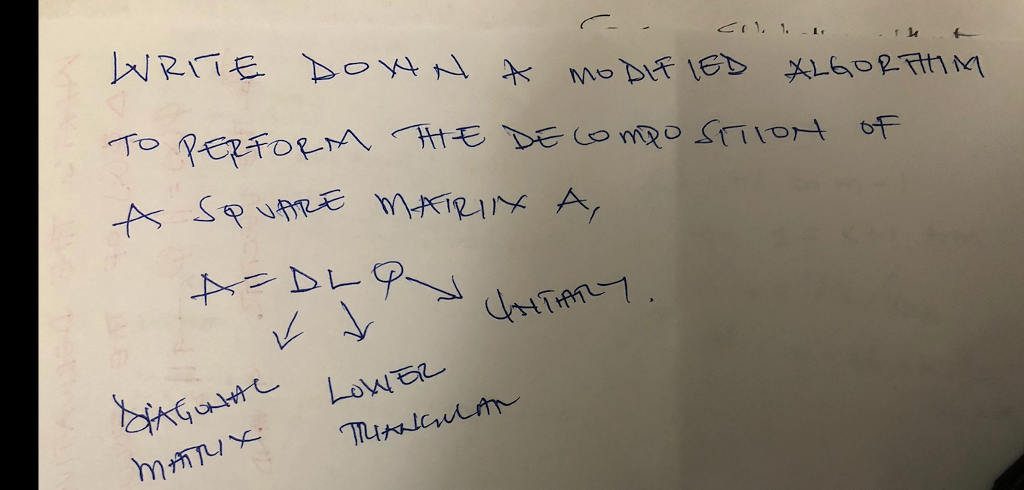 WRITE DOWN A MODIFIED ALGORITHM
TO PERFORM THE DECOMPOSITION OF
A SQUARE MATRIX A,
A = D L Q
UNITARY.
DIAGONAL MATRIX
LOWER TRIANGULAR